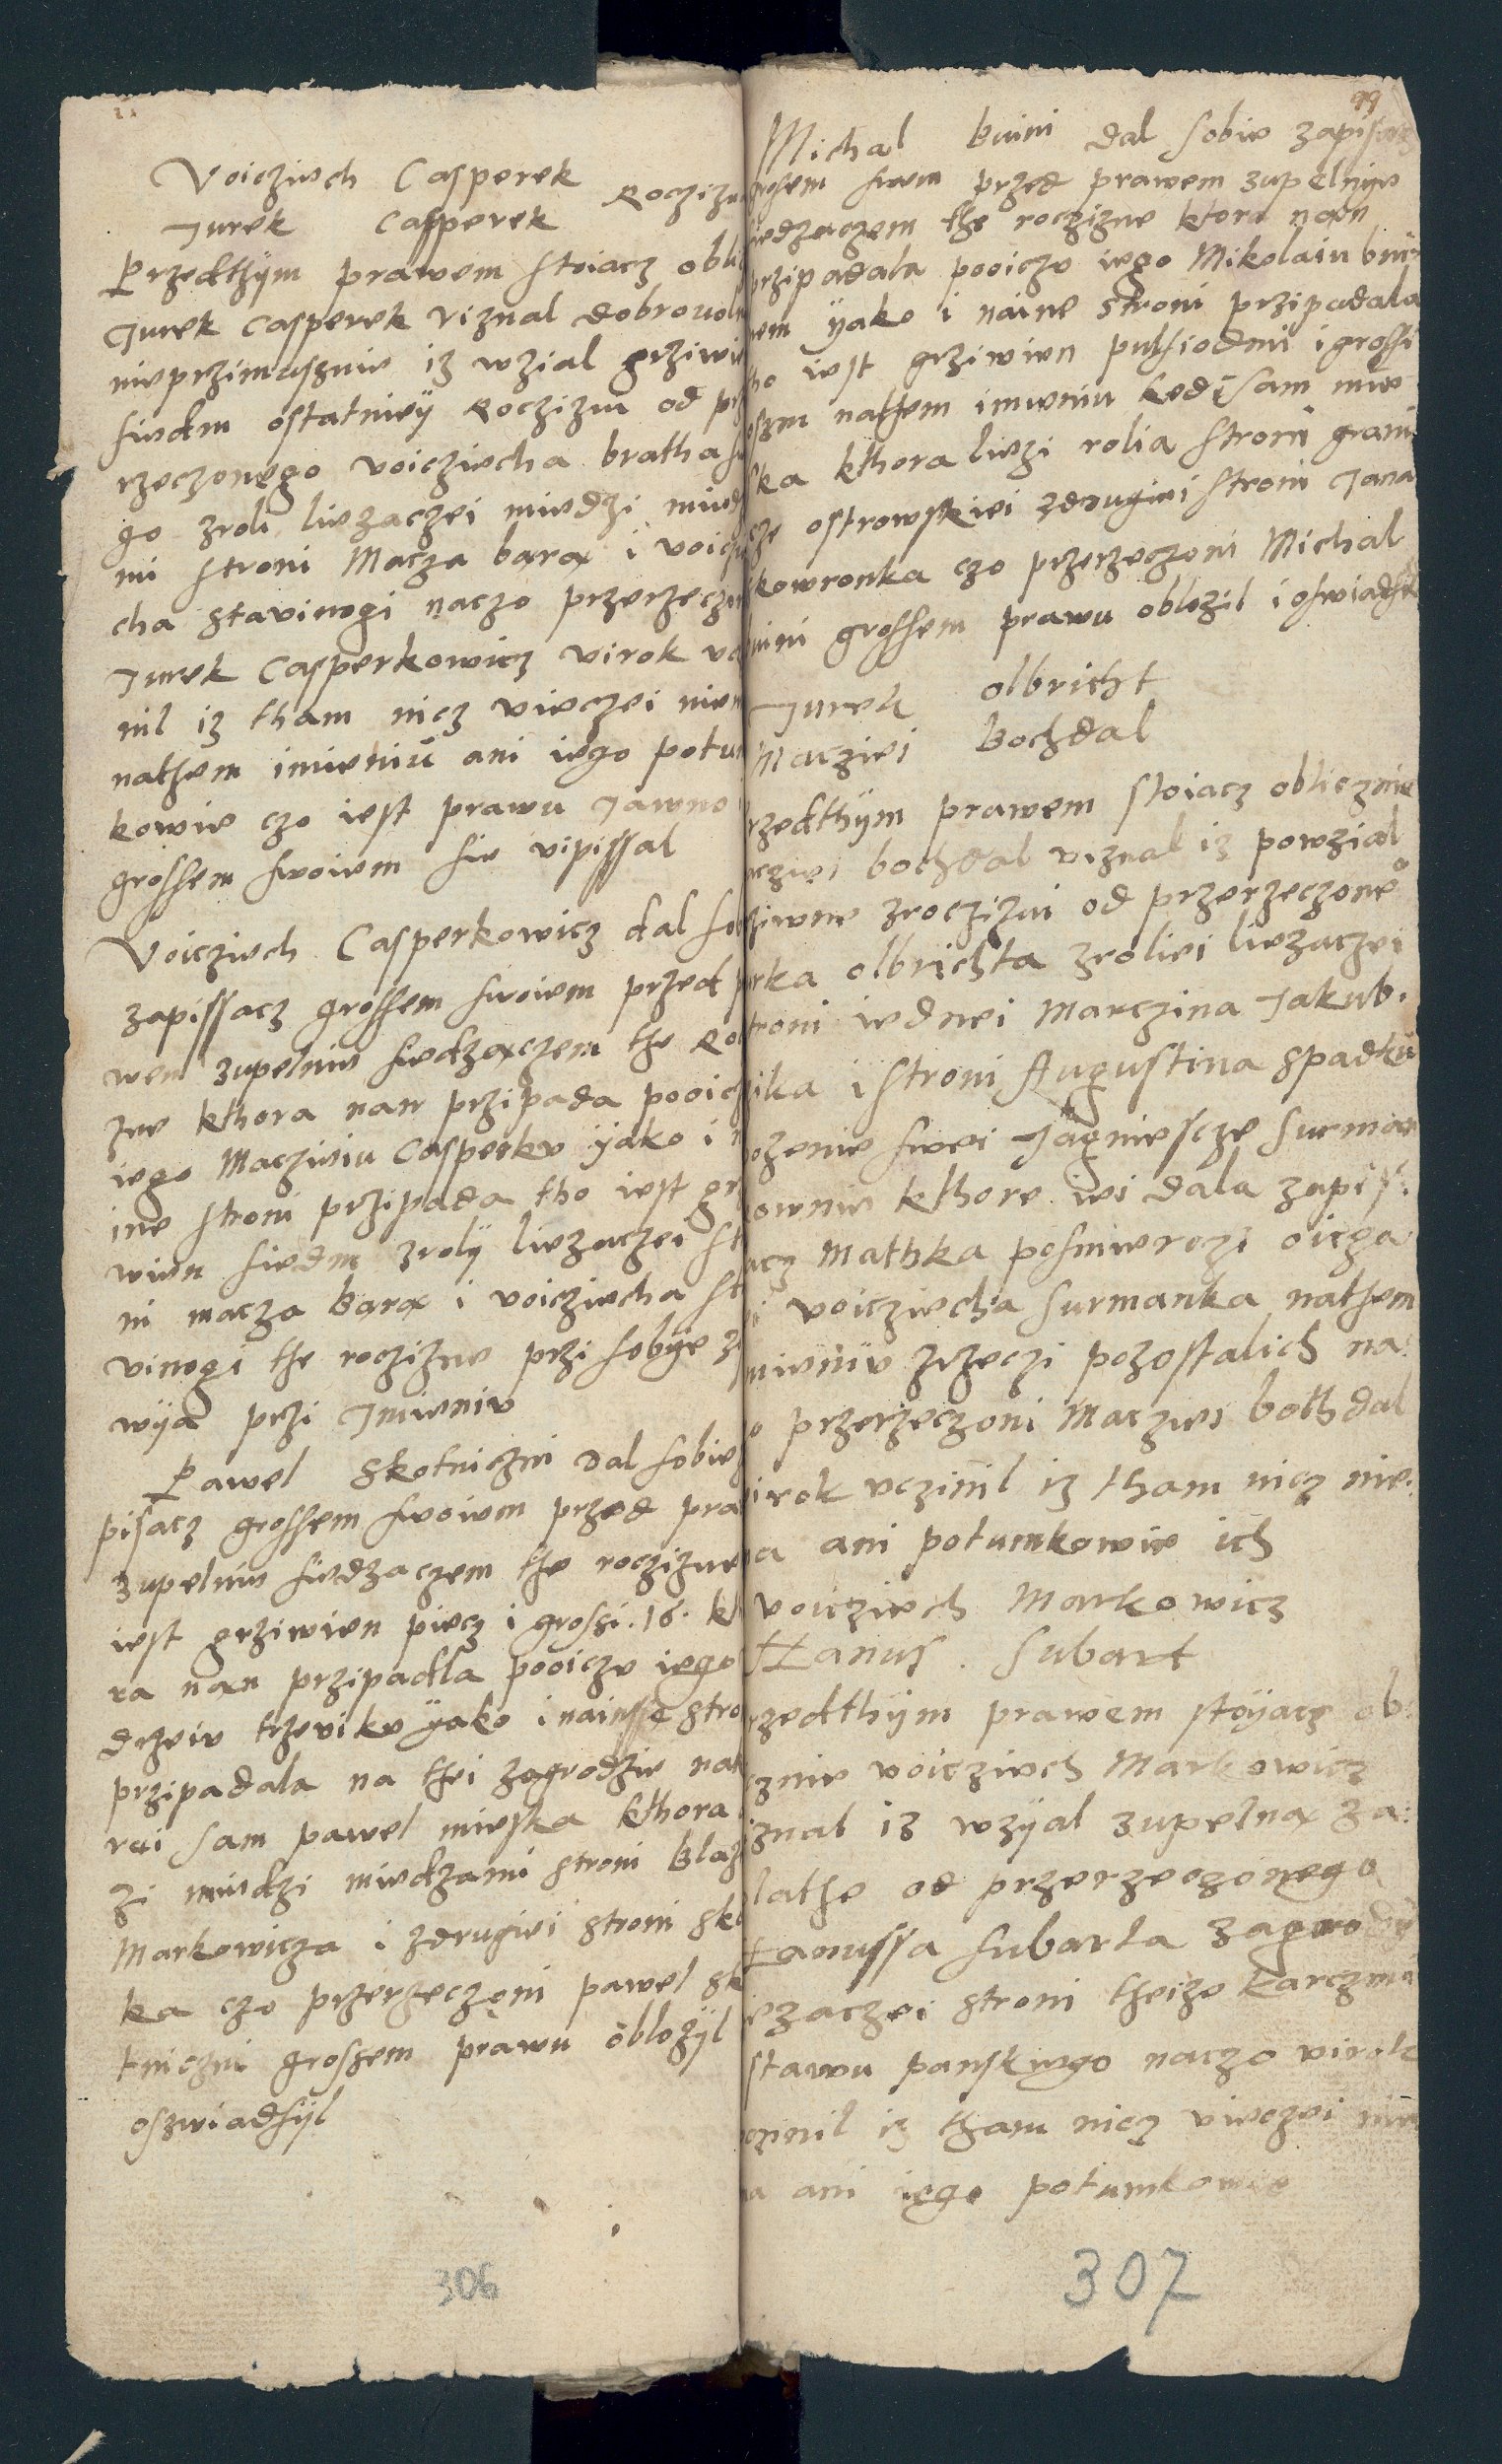 Voicziech Casperek
Jurek Casperek Roczizn
Przedthÿm prawem stoiacz obli
Jurek Casperek viznal dobrouol
nieprzimuszenie iz wzial grziwie
siedm ostatnieÿ Roczizni od prz
rzeczonego voicziecha bratha sw
go zroli liezaczei miedzi miedz
mi stroni Macza barax i voiczie
cha stavinogi naczo przerzeczon
Jurek Casperkowicz virok vcz
nil iz tham nicz vieczei niem
nathem imieniu ani iego potu
kowie czo iest prawu Jawno
grossem swoiem sie vipissal
Voicziech Casperkowicz dal sob
zapissacz grossem swoiem przed p
wem zupelnie siedzaczem the Ro
zne kthora nan przipada pooicz
iego Macziewiu Casperku ÿako i n
ine stroni przipada tho iest gr
wien siedm zrolÿ liezaczei st
ni macza Barax i voicziecha st
vinogi the roczizne przi sobÿe z
wÿa przi Jmieniv
Pawel Skotniczni dal sobie
pisacz grossem swoiem przed pra
zupelnie siedzaczem the roczizne
iest grziwien piecz i grossi .16. k
ra nan przipadla pooicze iego
drzeiu trzeviku ÿako i nainsse stro
przipadala na thei zagrodzie nak
rei sam pawel mieska kthora
zi miedzi miedzami stroni Blaz
Markowicza i zdrugiei stroni sk
ka czo przerzeczoni pawel sk
tniczni grossem prawu oblozÿl
oszwiadsÿl
306
99
Michal buini dal sobie zapisacz
grossem swem przed prawem zupelnye
siedzaczem the roczizne ktora nan
przipadala pooicze iego Mikolaiu bui
nem ÿako i naine stroni przipadala
tho iest grziwien pulsiodmi i grossi
oszm nathem imieniu kedi sam mies
ska kthora liezi rolia stroni grani
cze ostrowskiei zdrugiei stroni Jana
skowronka czo przerzeczoni Michal
buini grossem prawu oblozil i oswiadsil
Jurek olbricht
Macziei Bochdal
rzedthÿm prawem stoiacz obliecznie
aczei bochdal viznal iz powzial
ziwne zroczizni od przerzeczone°
urka olbrichta zroliei liezaczei
stroni iednei Marczina Jakub.
nika i stroni Augustina spadku
pozenie swei Jagniescze surman
kownie kthore iei dala zapiss.
acz Mathka posmierczi oicza
i voicziecha surmanka nathem
mieniu zrzeczi pozostalich na.
o przerzeczoni Maczei bothdal
virok vczinil iz tham nicz nie.
a ani potumkowie ich
voicziech Markowicz
Hanus. Subart
rzedthÿm prawem stoÿacz ob.
cznie voicziech Markowicz
iznal iz wzÿal zupelnax za:
lathe od przerzeczonego
Hanussa subarta zagrody
iezaczei stroni theize karczmi
stawu panskiego naczo virok
vczinil iz tham nicz vieczei nie
a ani iego potumkowie
307